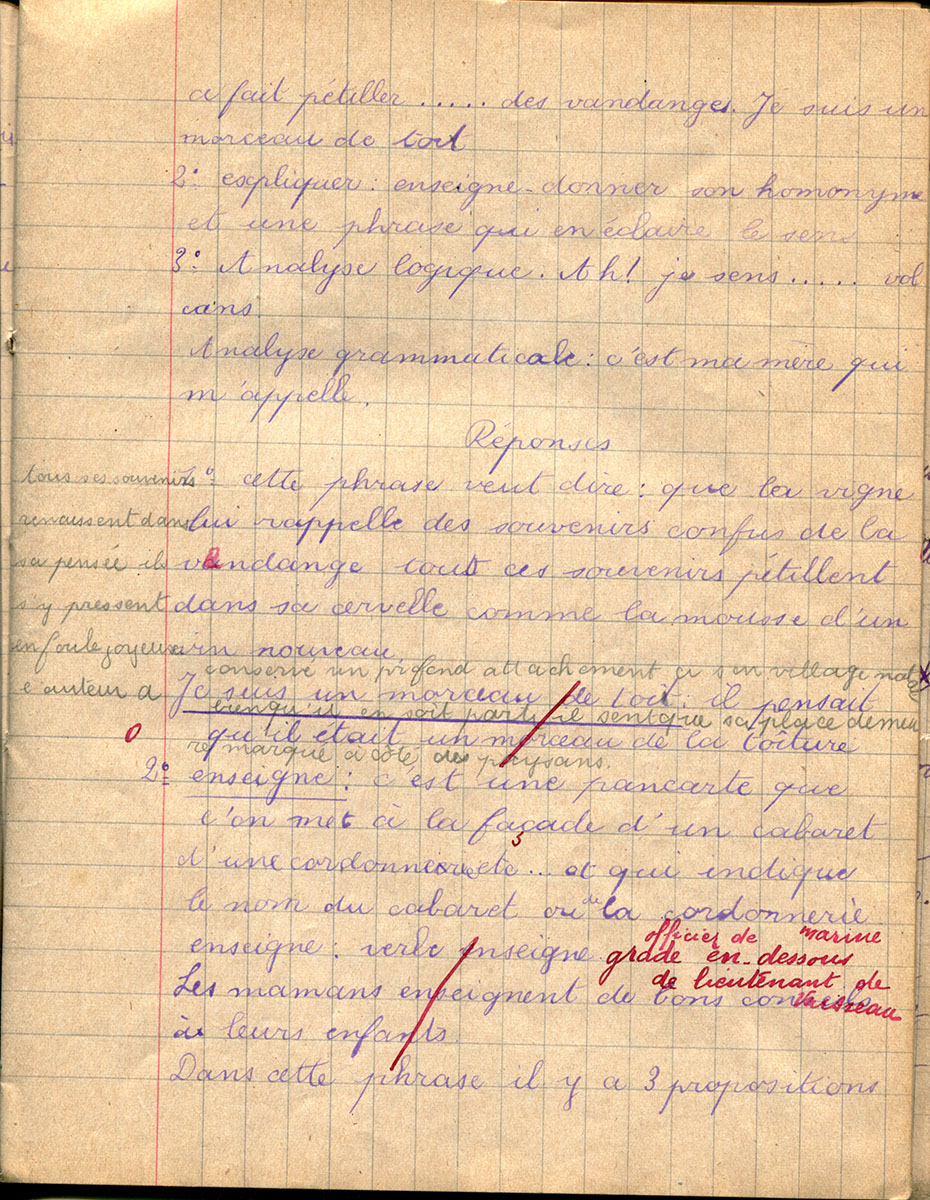 a fait pétiller ..... des vandanges. Je suis un
morceau de toit
2° expliquer : enseigne - donner son homonyme
et une phrase qui en éclaire le sens
3° Analyse logique. Ah! je sens ..... vol
cans.
Analyse grammaticale : c'est ma mère qui
m'appelle.
Réponses
1° cette phrase veut dire : que la vigne
lui rappelle des souvenirs confus de la
vendange tous ces souvenirs pétillent
dans sa cervelle comme la mousse d'un
vin nouveau
tous ses souvenirs
renaissent dans
sa pensée ils
s'y pressent
en foule joyeuse
l'auteur a
conservé un profond attachement à son village natal
Je suis un morceau de toit : il pensait
bien qu'il en soit parti il sent que sa place demeu
qu'il était un morceau de la toiture
re marqué à côté des paysans.
0
2° enseigne : c'est une pancarte que
l'on met à la façade d'un cabaret
3
d'une cordonnerie etc ... et qui indique
le nom du cabaret ou de la cordonnerie
enseigne : verbe enseigne
officier de marine
grade en-dessous
de lieutenant de
vaisseau
Les mamans enseignent de bons conseils
à leurs enfants.
Dans cette phrase il y a 3 propositions